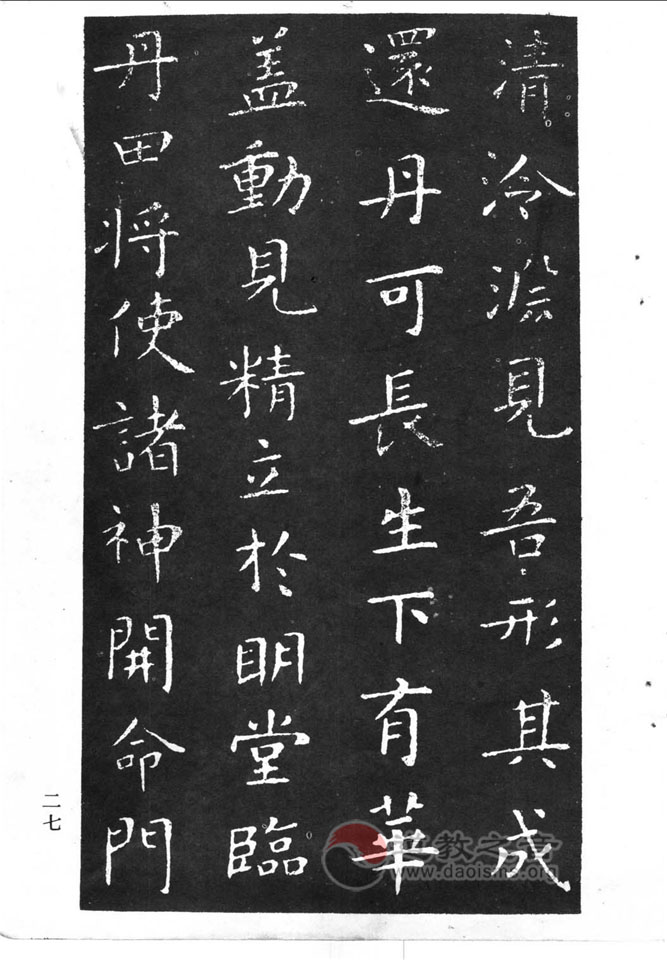 清冷淵見吾形其成
還丹可長生下有華
蓋動見精立於眀堂臨
丹田將使諸神開命門
二七
道教之音
www.daoisms.org